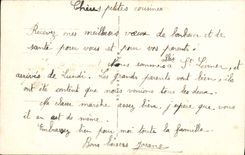 Chères petites cousines
Recevez mes meilleurs vœux de bonheur et de
santé pour vous et pour vos parents.
Nous sommes St
arrivés de Lundi. Les grands parents vont bien, ils
ont été content que nous venions tous les deux.
La classe marche assez bien, j'espère que vous
il en est de même.
Embrassez bien pour moi toute la famille.
Bons baisers